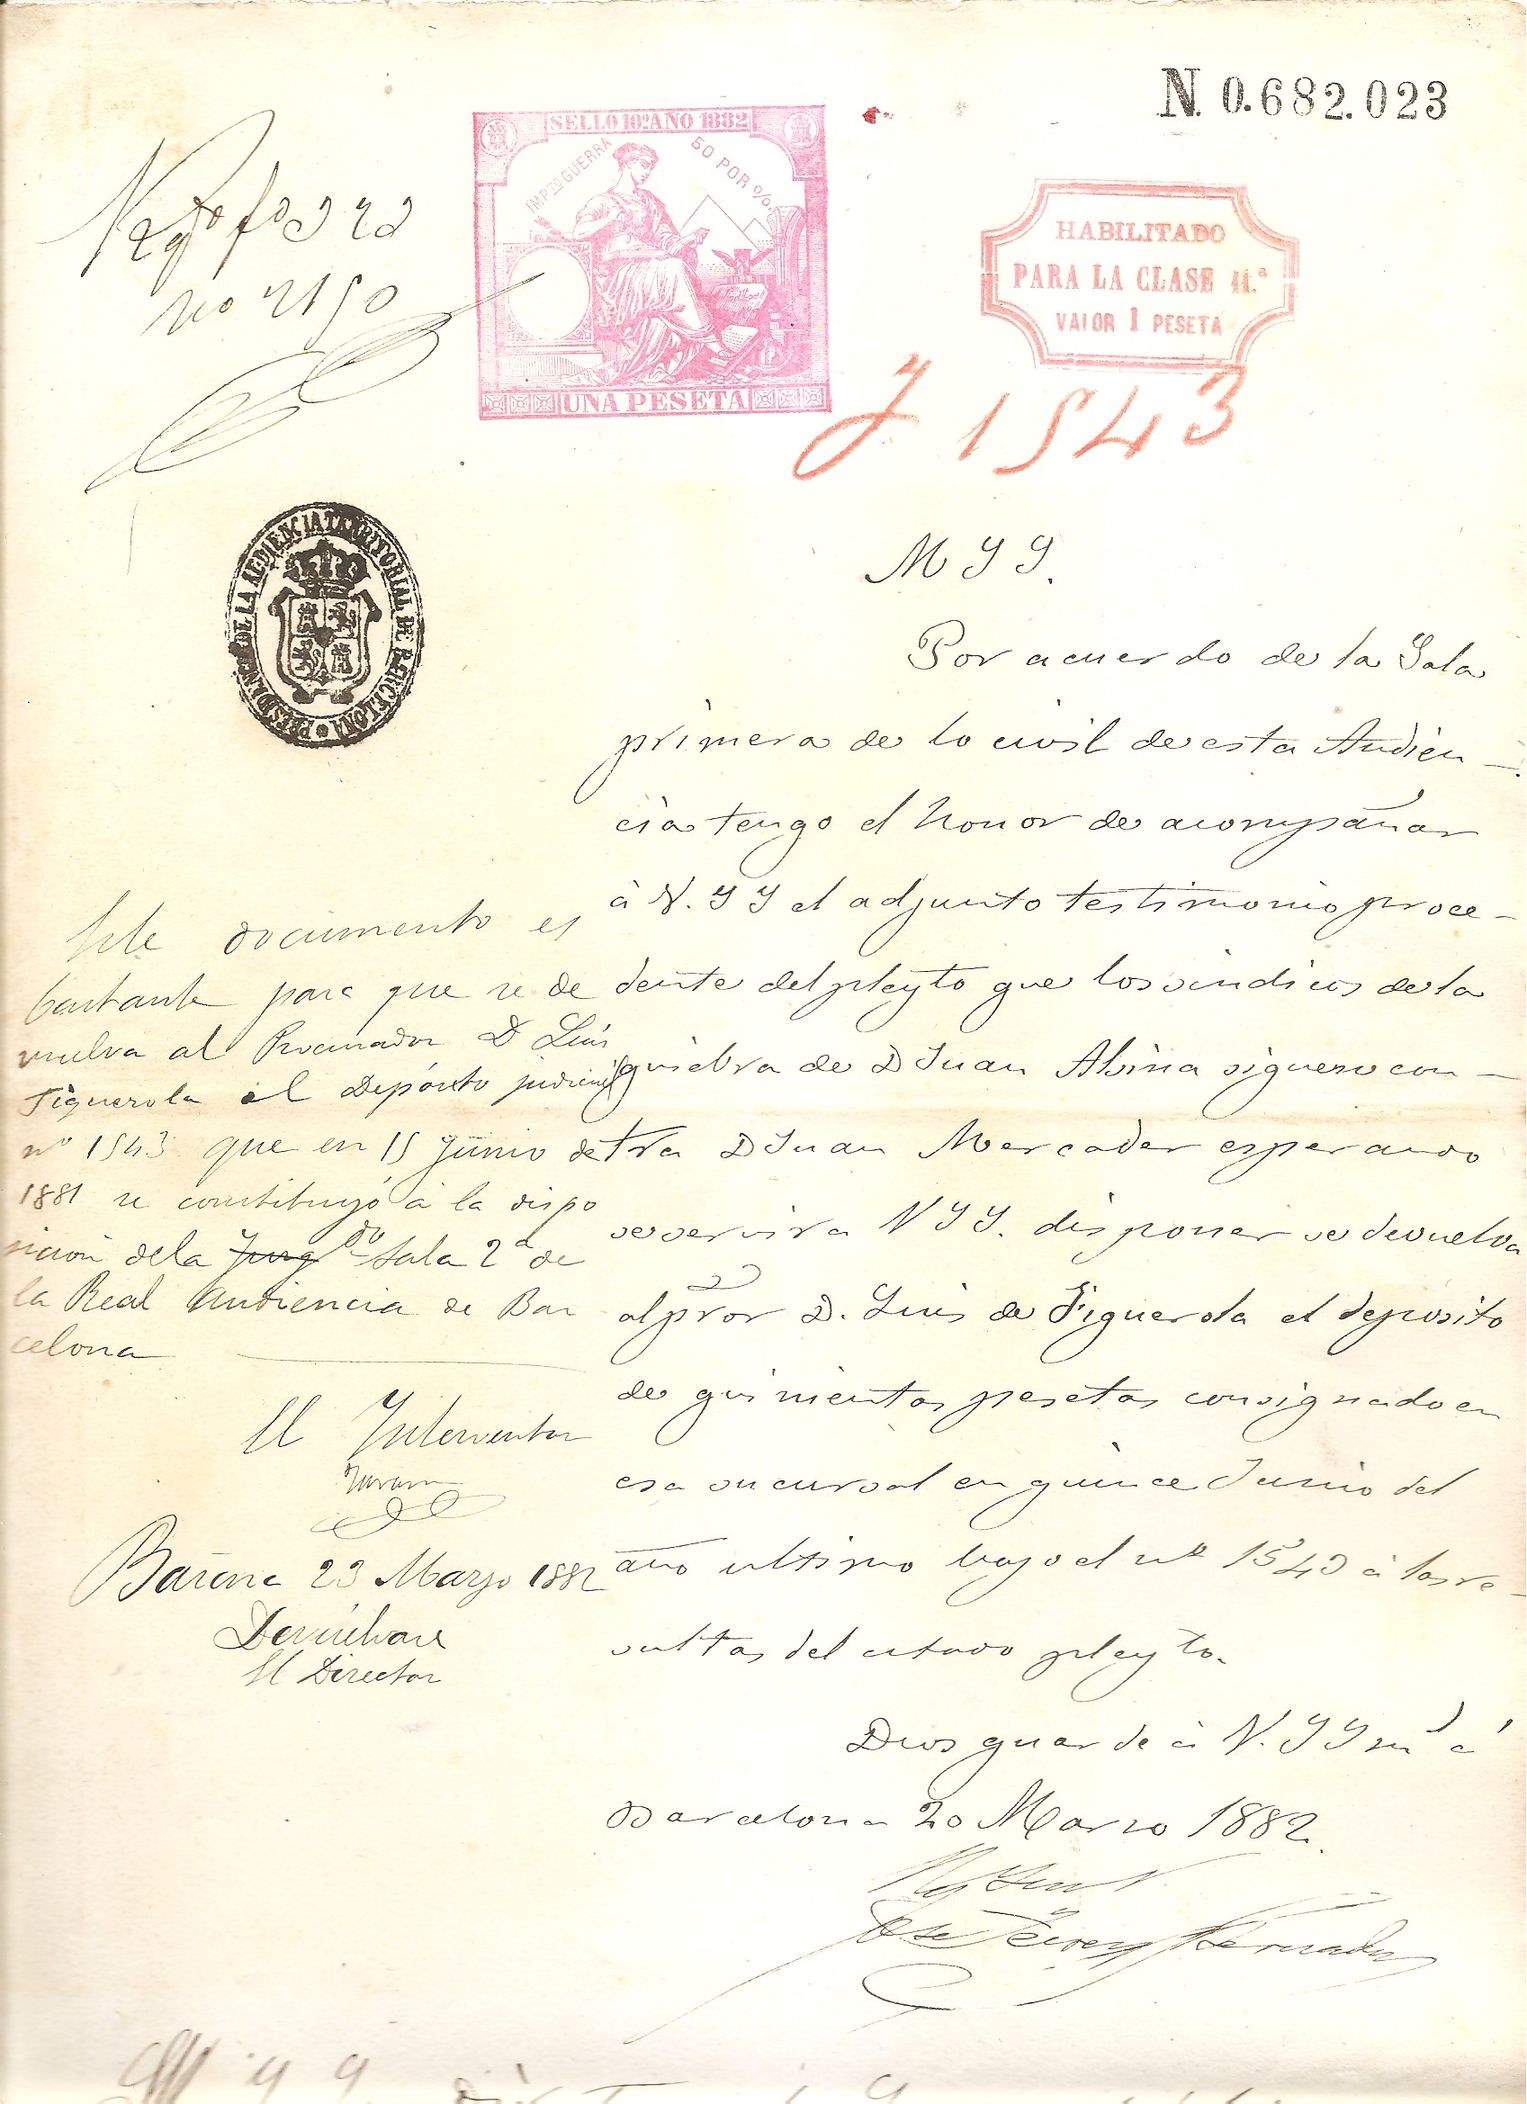 N. 0.682.023
SELLO 10º AÑO 1882
IMPTO GUERRA 50 POR %
UNA PESETA
HABILITADO
PARA LA CLASE 11.ª
VALOR 1 PESETA
fo 322
no 2150
J 1543
PRESIDENCIA DE LA AUDIENCIA TERRITORIAL DE BARCELONA
M Y S.
Por acuerdo de la Sala
primera de lo civil de esta Audien-
cia tengo el honor de acompañar
à V. Y S el adjunto testimonio proce-
dente del pleyto que los sindicos de la
quiebra de D Juan Alsina siguen con-
tra D Juan Mercader esperando
se servira V Y S. disponer se devuelva
al pror D. Luis de Figuerola el deposito
de quinientas pesetas consignado en
esa sucursal en quince Junio del
año ultimo bajo el nº 1543 à las re-
sultas del citado pleyto.
Dios guarde à V. Y S m a
Barcelona 20 Marzo 1882.
Este documento es
bastante para que se de
vuelva al Procurador D Luis
Figuerola el Depósito judicial
nº 1543 que en 15 Junio de
1881 se constituyó à la dispo
sicion de la Juzgdo Sala 2ª de
la Real Audiencia de Bar
celona
El Interventor
Barcna 23 Marzo 1882
El Director